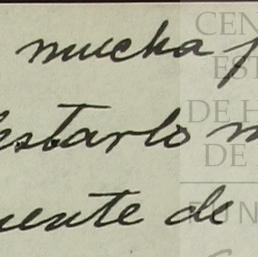 mucha p
estarlo m
mente de
CEN
EST
DE H
DE
FUN